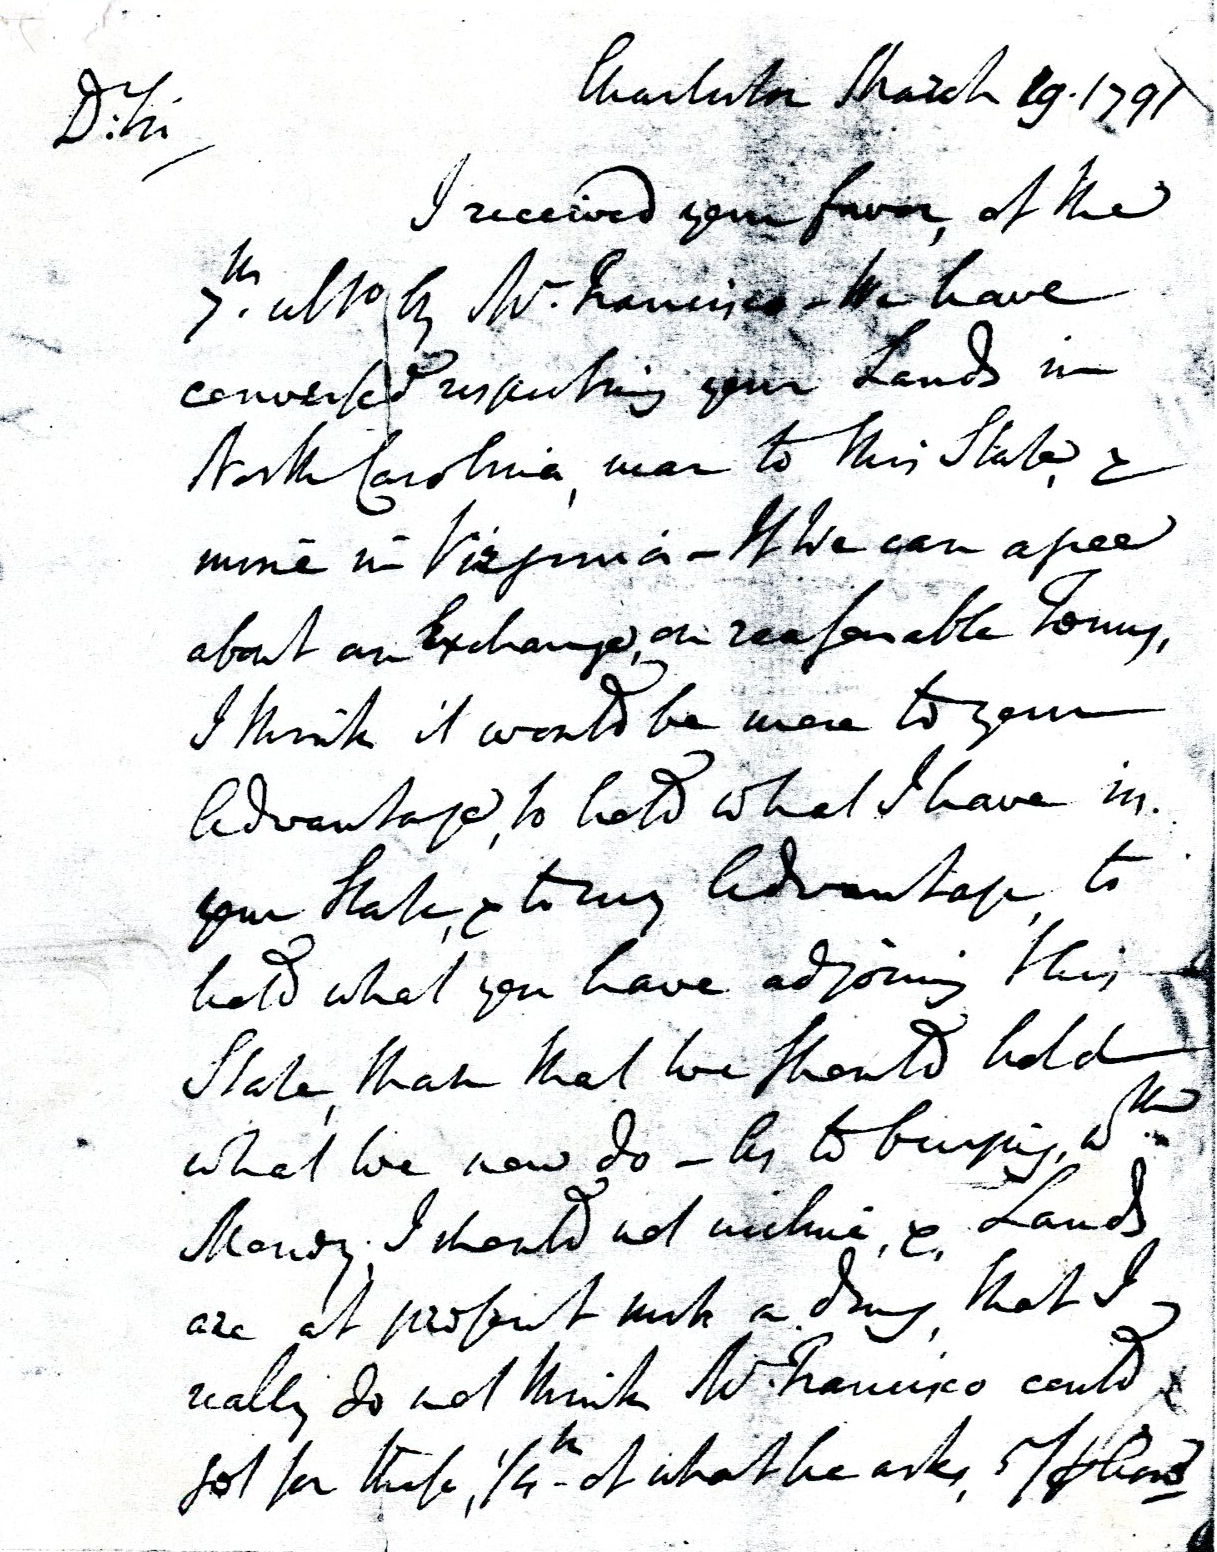 Charleston March 29. 1791
Dr. Sir
I received your favor, of the
7th. ulto by Mr. Francisco – We have
conversed respecting your Lands in
North Carolina, near to this State, &
mine in Virginia – If We can agree
about an Exchange, on reasonable Terms,
I think it would be more to your
Advantage, to hold what I have in
your State, & to my Advantage, to
hold what you have adjoining this
State, than that we should hold
what we now do – As to buying, wth
Money, I should not incline, &, Lands
are at present such a drug, that I
really do not think Mr. Francisco could
get for these, 1/4th of what he asks, 5/